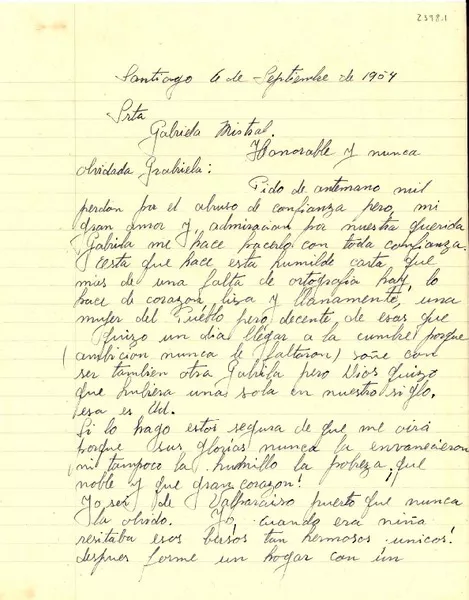 2398.1
Santiago 6 de Septiembre de 1954
Srta
Gabriela Mistral.
Honorable y nunca
olvidada Grabiela:
Pido de antemano mil
perdon por el abuso de confianza pero, mi
gran amor y admiracion por nuestra querida
Gabriela me hace hacerlo con toda confianza.
esta que hace esta humilde carta, que
mas de una falta de ortografia hay, lo
hace de corazon, lisa y llanamente, una
mujer del Pueblo pero decente de esas que
quizo un dia llegar a la cumbre porque
(ambicion nunca le faltaron) soñe con
ser tambien otra Gabriela pero Dios quizo
que hubiera una sola en nuestro siglo.
esa es Ud.
Si lo hago estos segura de que me oirá
porque sus glorias nunca la envanecieron
ni tampoco la humillo la pobreza, ¡que
noble y que gran corazon!
Yo soi de Valparaiso puerto que nunca
la olvido. Yo, cuando era niña
resitaba esos bersos tan hermosos unicos!
despues forme un hogar con ún